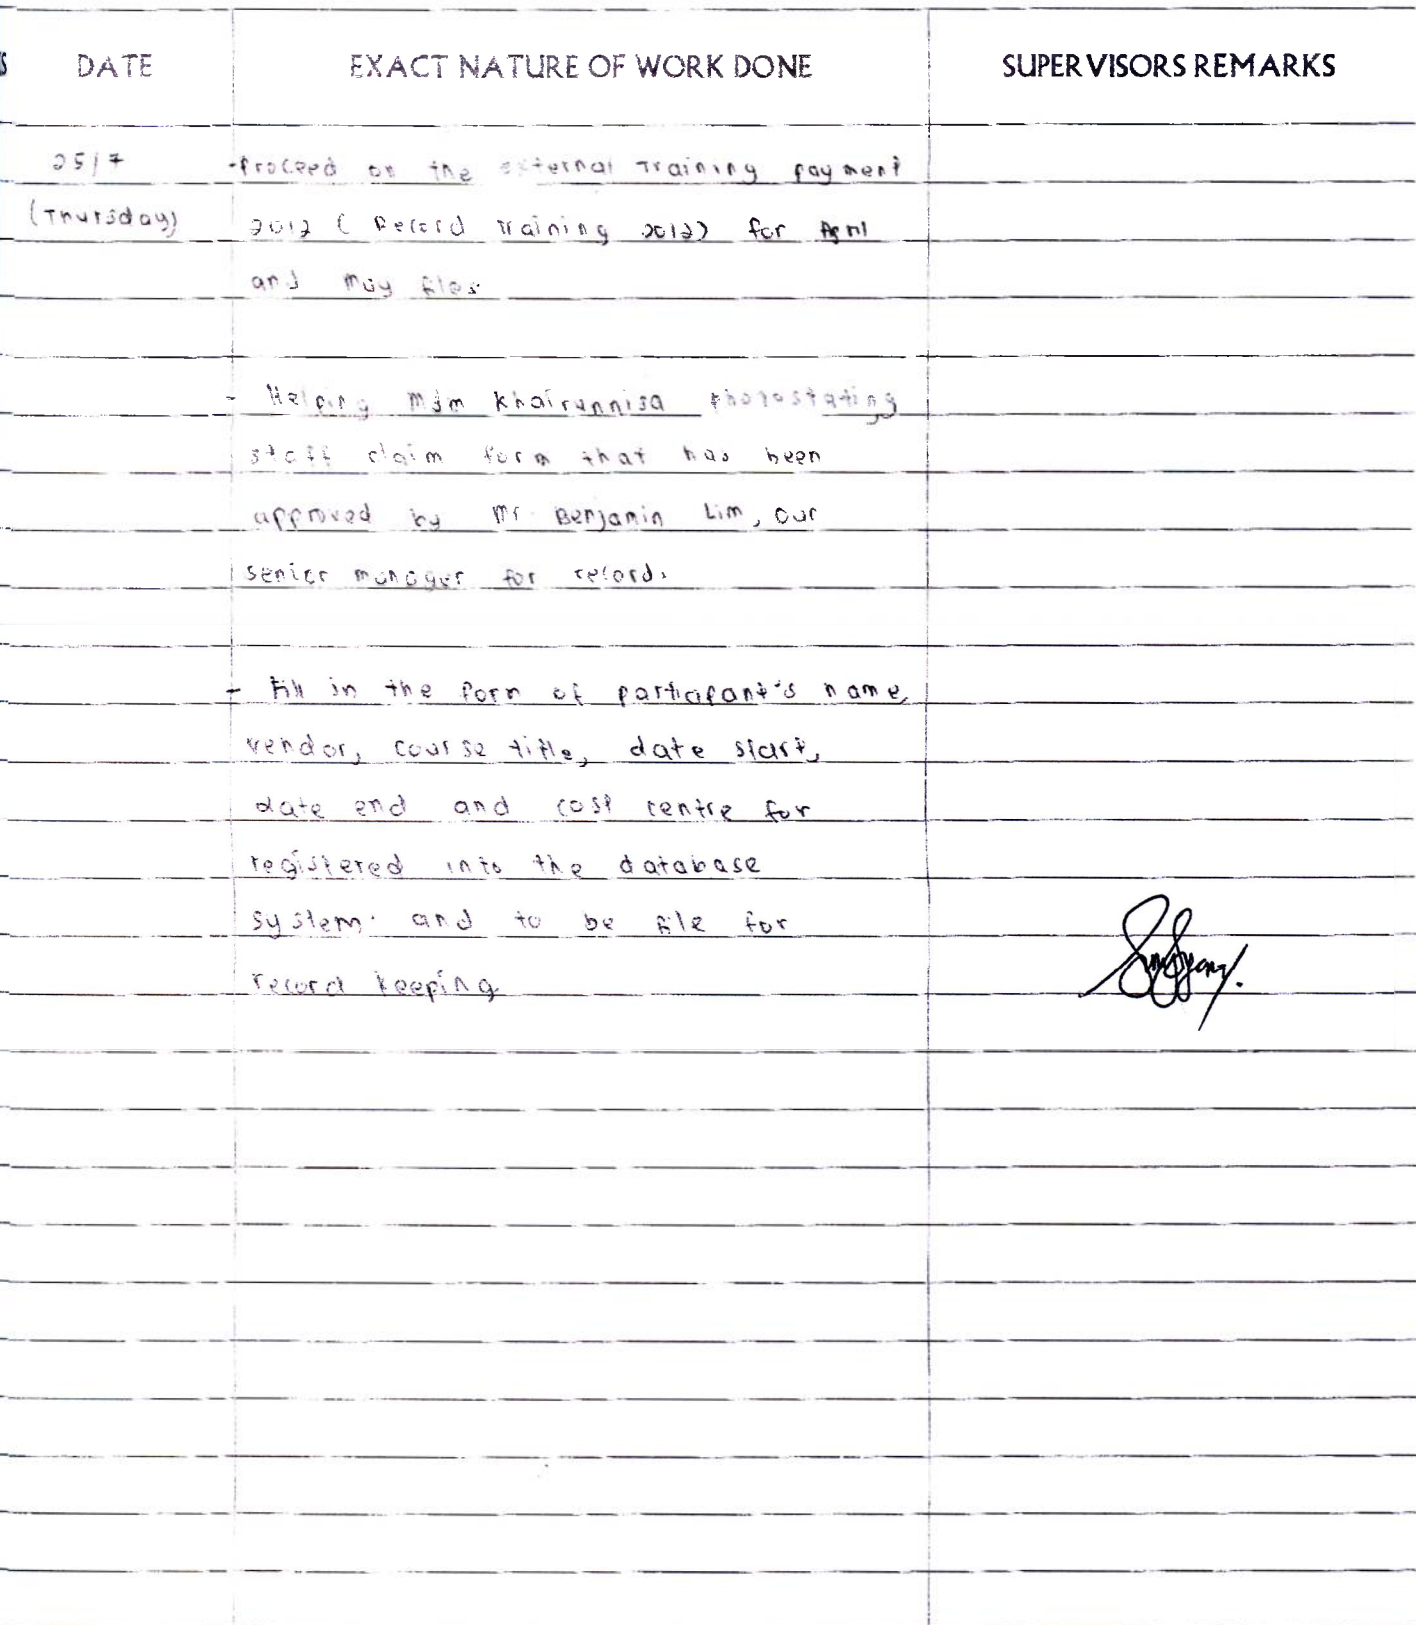 DATE EXACT NATURE OF WORK DONE SUPERVISORS REMARKS
25/7 -Proceed on the external Training payment
(Thursday) 2012 (Record Training 2012) for April
and May files
- Helping Mdm Khairunnisa photostating
staff claim form that has been
approved by Mr. Benjamin Lim, our
senior manager for record.
- Fill in the form of participant's name,
vendor, course title, date start,
date end and cost centre for
registered into the database
system. and to be file for
record keeping